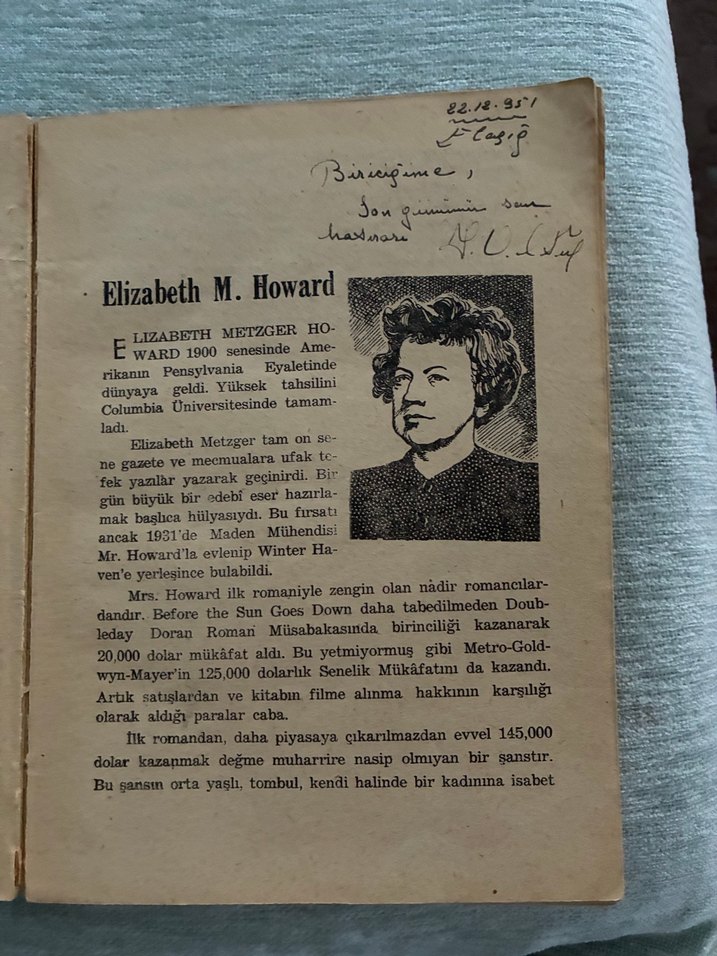 22.12.951
Elazığ
Biriciğime,
Son günümün son
hatırası
Elizabeth M. Howard
ELIZABETH METZGER HO-
WARD 1900 senesinde Ame-
rikanın Pensylvania Eyaletinde
dünyaya geldi. Yüksek tahsilini
Columbia Üniversitesinde tamam-
ladı.
Elizabeth Metzger tam on se-
ne gazete ve mecmualara ufak te-
fek yazılar yazarak geçinirdi. Bir
gün büyük bir edebî eser hazırla-
mak başlıca hülyasıydı. Bu fırsatı
ancak 1931'de Maden Mühendisi
Mr. Howard'la evlenip Winter Ha-
ven'e yerleşince bulabildi.
Mrs. Howard ilk romaniyle zengin olan nâdir romancılar-
dandır. Before the Sun Goes Down daha tabedilmeden Doub-
leday Doran Roman Müsabakasında birinciliği kazanarak
20,000 dolar mükâfat aldı. Bu yetmiyormuş gibi Metro-Gold-
wyn-Mayer'in 125,000 dolarlık Senelik Mükâfatını da kazandı.
Artık satışlardan ve kitabın filme alınma hakkının karşılığı
olarak aldığı paralar caba.
İlk romandan, daha piyasaya çıkarılmazdan evvel 145,000
dolar kazanmak değme muharrire nasip olmıyan bir şanstır.
Bu şansın orta yaşlı, tombul, kendi halinde bir kadınına isabet